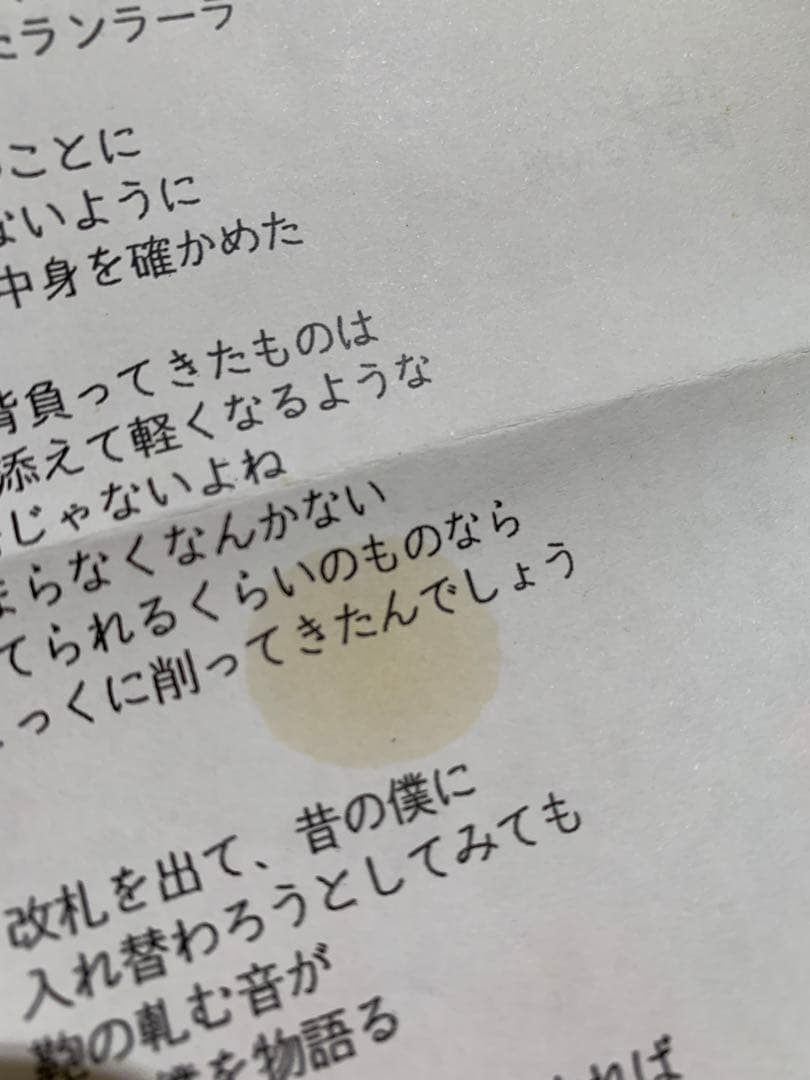 たランラーラ
ことに
ないように
中身を確かめた
背負ってきたものは
添えて軽くなるような
じゃないよね
まらなくなんかない
てられるくらいのものなら
っくに削ってきたんでしょう
改札を出て、昔の僕に
入れ替わろうとしてみても
鞄の軋む音が
僕を物語る
れば